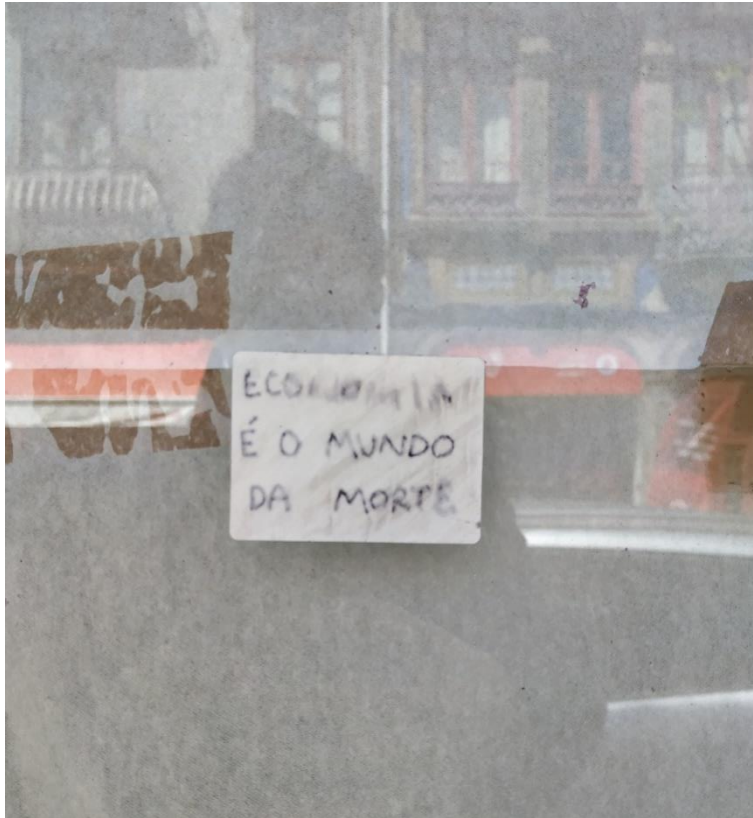 ECONOMIA
É O MUNDO
DA MORTE